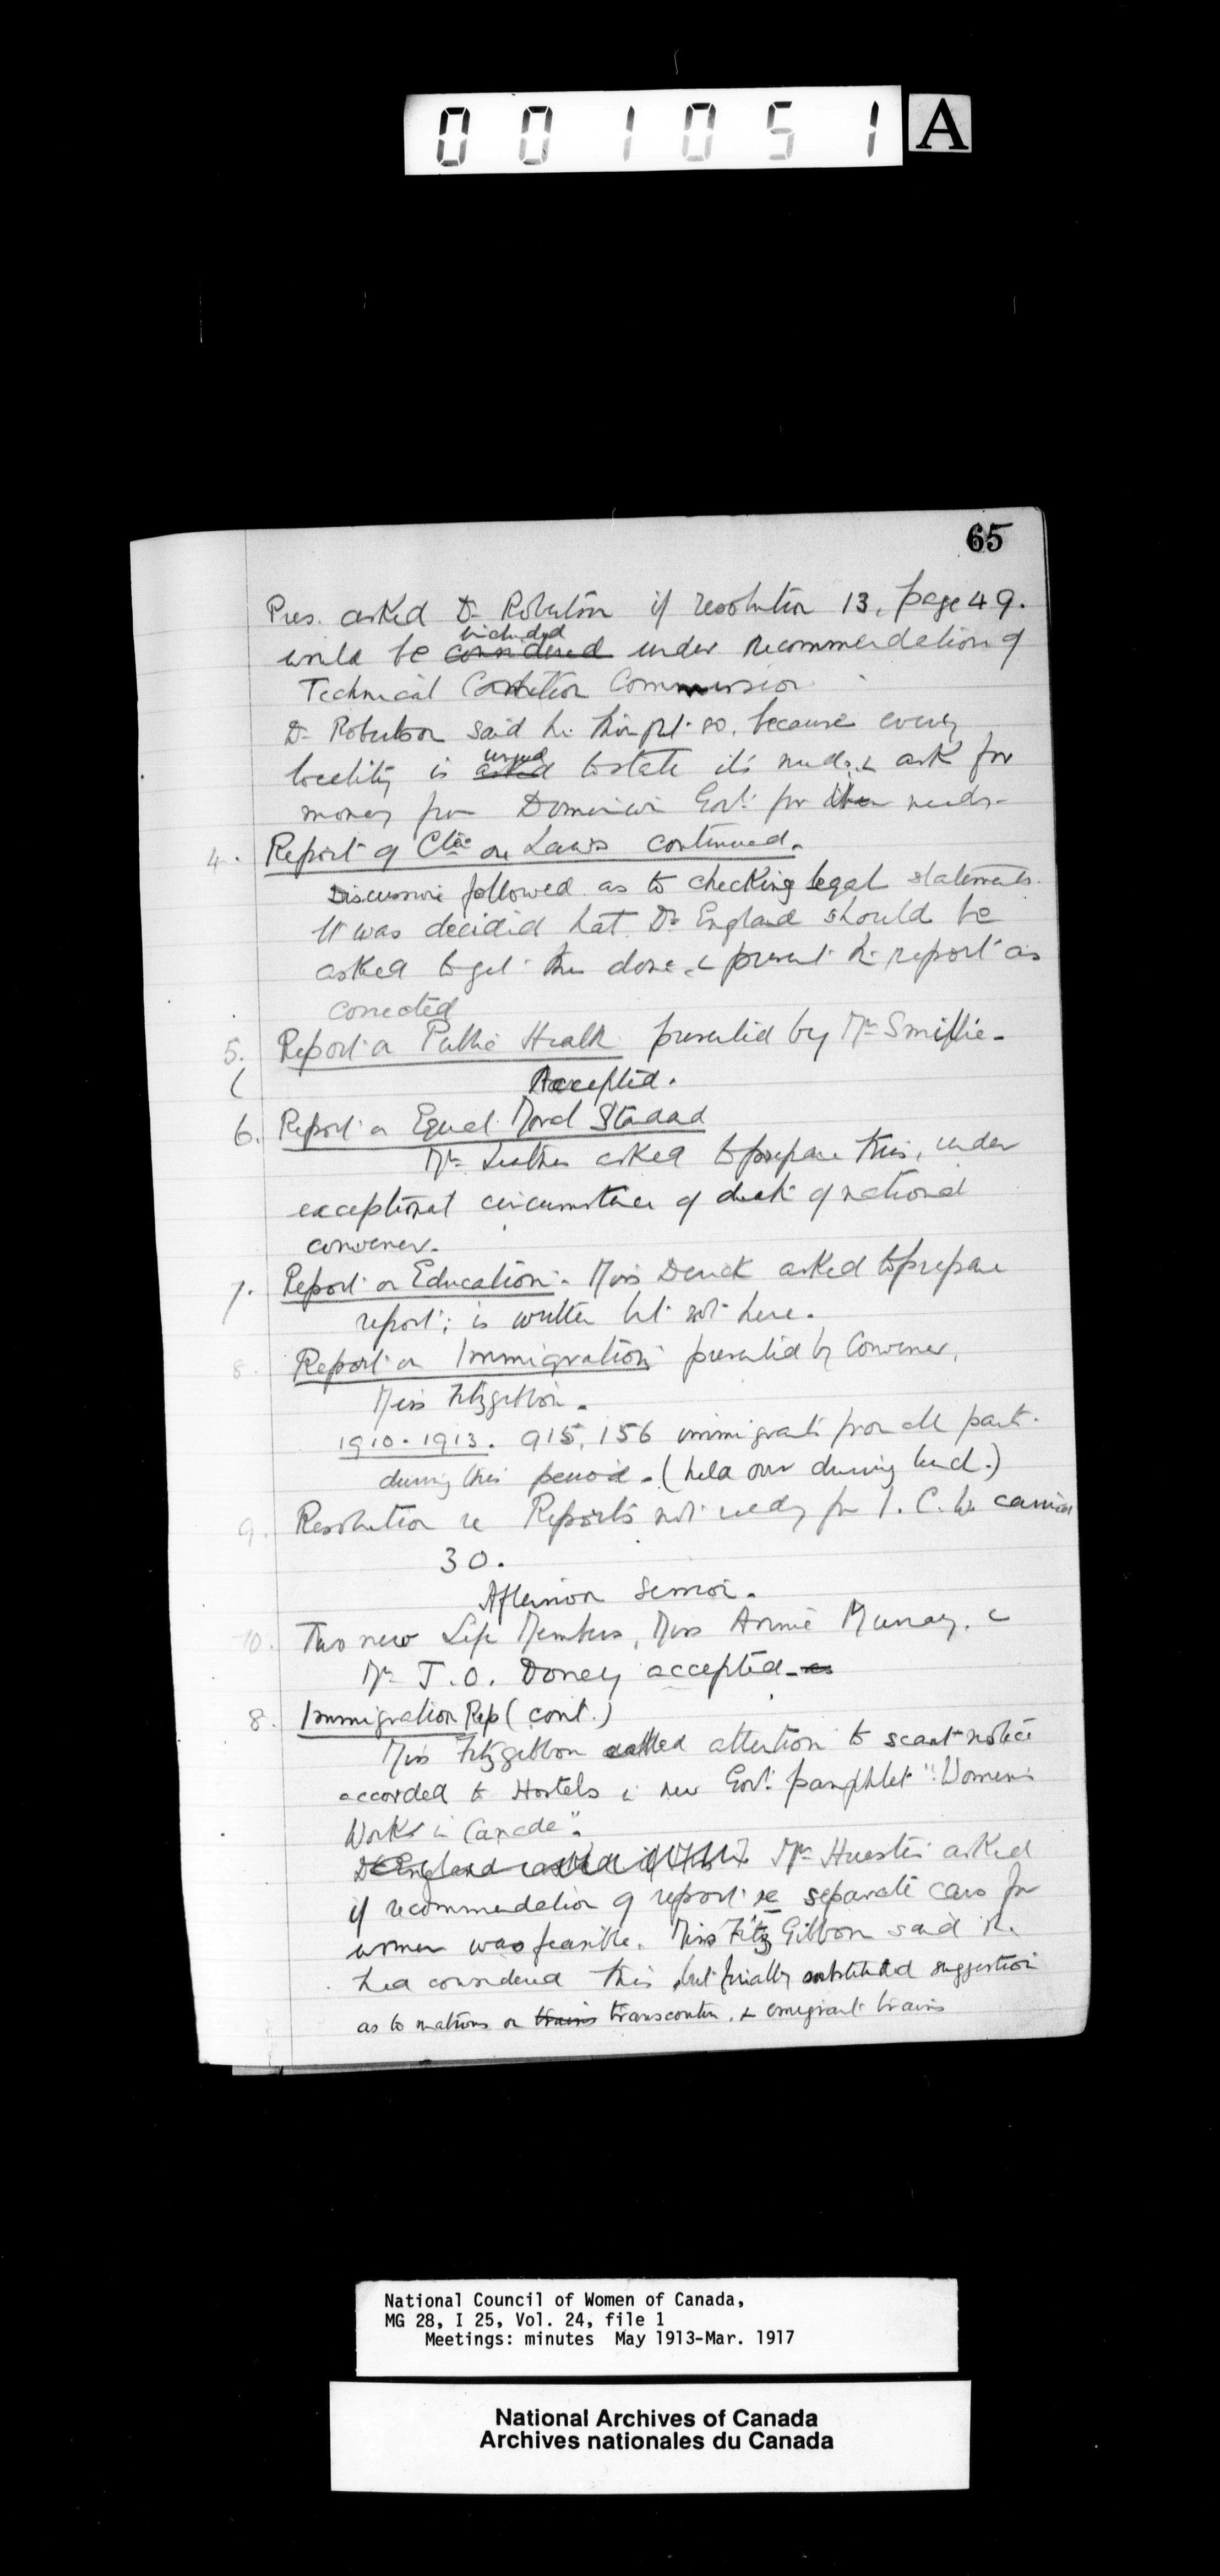 001051 A
65
Pres. asked Dr Robertson if resolution 13, page 49.
included
would be considered under recommendation of
Technical Commission
Dr Robertson said he thought so, because every
urged
locality is asked to state its needs & ask for
money from Dominion Govt. for their needs.
4. Report of Ctee on Laws continued.
Discussion followed as to checking legal statements.
It was decided that Dr England should be
asked to get this done & present the report as
corrected
5. Report on Public Health presented by Mrs Smillie.
Accepted.
6. Report on Equal Moral Standard
Mrs Leathes asked to prepare this, under
exceptional circumstances of death of national
convener.
7. Report on Education. Miss Derick asked to prepare
report; is written but not here.
8. Report on Immigration presented by Convener,
Miss Fitzgibbon.
1910-1913. 915,156 immigrants from all parts
during this period. (held over during lunch.)
9. Resolution re Reports not ready for I.C.W. carried
30.
Afternoon session.
10. Two new Life Members, Miss Annie Murray, &
Mrs J.O. Doney accepted.
8. Immigration Rep (cont.)
Miss Fitzgibbon called attention to scant notice
accorded to Hostels in new Govt. pamphlet "Women's
Work in Canada".
Dr England asked if Mrs Huestis asked
if recommendation of report re separate cars for
women was feasible. Miss FitzGibbon said she
had considered this, but finally substituted suggestion
as to matrons on trains transcontin. & emigrant trains
National Council of Women of Canada,
MG 28, I 25, Vol. 24, file 1
Meetings: minutes May 1913-Mar. 1917
National Archives of Canada
Archives nationales du Canada